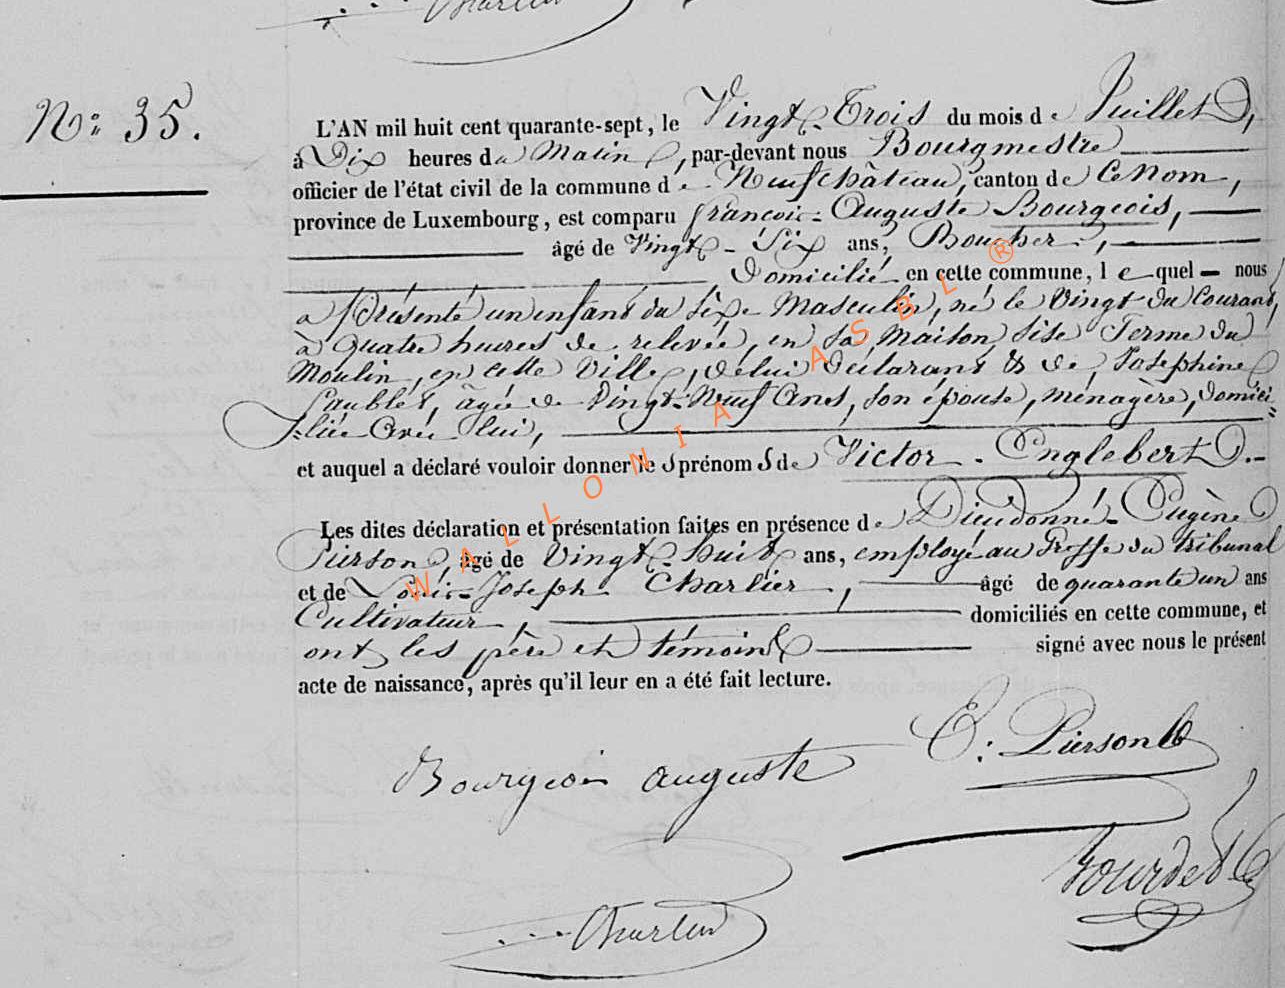 Charlier
N.º 35.
L'AN mil huit cent quarante-sept, le Vingt-Trois du mois de Juillet,
à Dix heures du Matin, par-devant nous Bourgmestre
officier de l'état civil de la commune de Neufchâteau, canton de Ce Nom,
province de Luxembourg, est comparu françois-Auguste Bourgeois,
âgé de Vingt-Six ans, Boucher,
Domicilié en cette commune, lequel nous
a présenté un enfant du sexe Masculin, né le Vingt du Courant,
à quatre heures de relevée, en sa maison sise Terme du
Moulin, en cette Ville, de lui déclarant & de Josephine
âgée de Vingt-Neuf Ans, son épouse, ménagère, domici
liée avec lui,
et auquel a déclaré vouloir donner les prénoms de Victor-Englebert.
Les dites déclaration et présentation faites en présence de Dieudonné-Eugène
Pierson, âgé de Vingt-huit ans, employé au Greffe du tribunal
et de Louis-Joseph Charlier, âgé de quarante un ans
Cultivateur, domiciliés en cette commune, et
ont les père et témoins signé avec nous le présent
acte de naissance, après qu'il leur en a été fait lecture.
E. Pierson
Bourgeois auguste
Bourdet
Charlier
WALLONIA ASBL ®